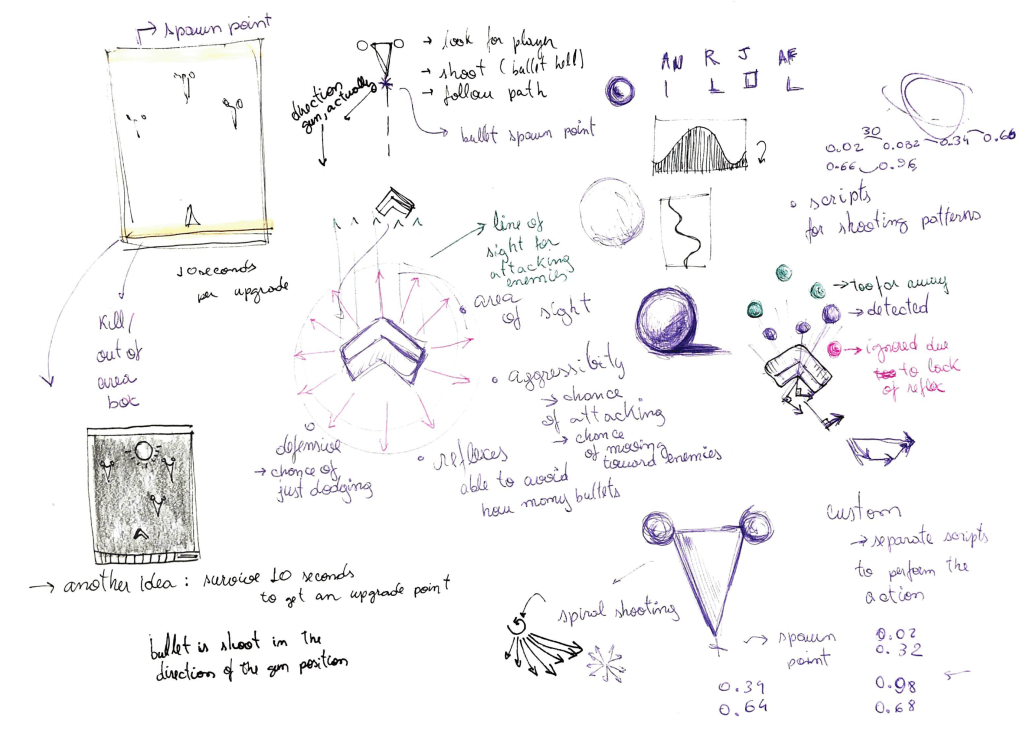 spawn point
→ look for player
→ shoot (bullet hell)
→ follow path
direction
gun, actually
bullet spawn point
AN R J AF
30
0.02 0.032 0.34 0.66
0.66 0.96
• scripts
for shooting patterns
?
10 seconds
per upgrade
Kill/
out of
area
box
→ line of
sight for
attacking
enemies
• area
of sight
• aggressibity
→ chance
of attacking
→ chance
of moving
toward enemies
• defensive
→ chance of
just dodging
• reflexes
able to avoid
how many bullets
→ too far away
→ detected
→ ignored due
to lack
of reflex
→ another idea: survive 10 seconds
to get an upgrade point
bullet is shoot in the
direction of the gun position
spiral shooting
→ spawn
point
0.34
0.64
custom
→ separate scripts
to perform the
action
0.02
0.32
0.98
0.68